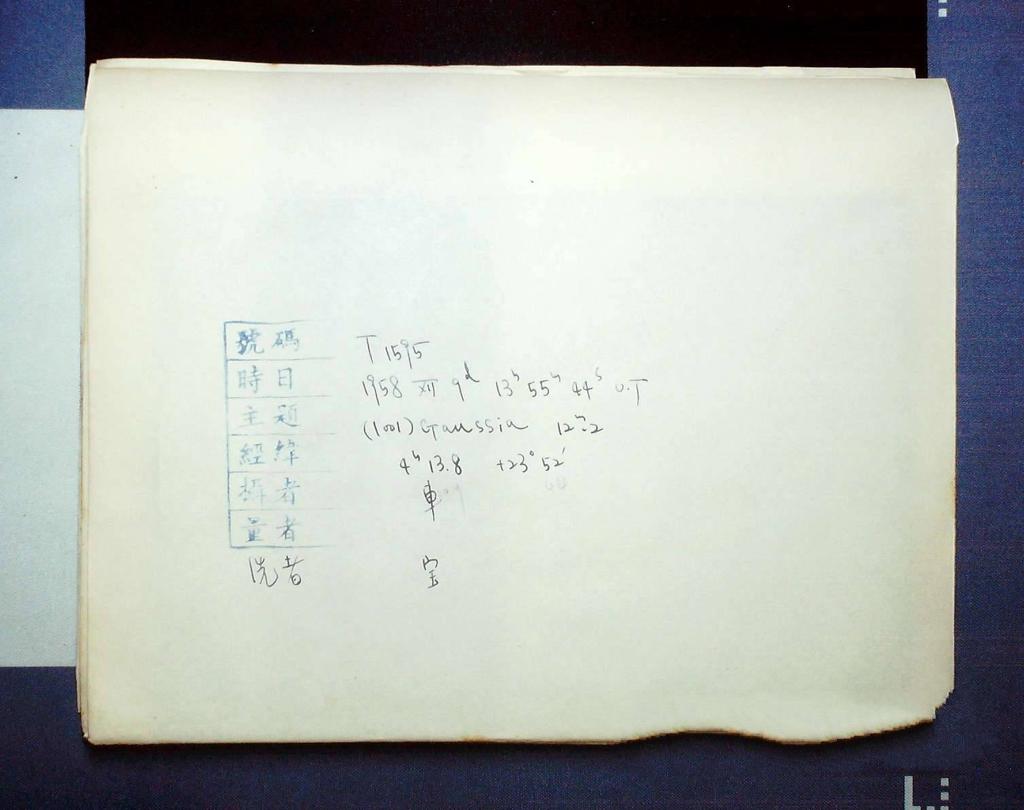 號碼 T 1595
時日 1958 XII 9d 13h 55m 44s U.T
主題 (1001) Gaussia 12m.2
經緯 4h 13.8 +23° 52'
攝者 車
量者
洗者 宝